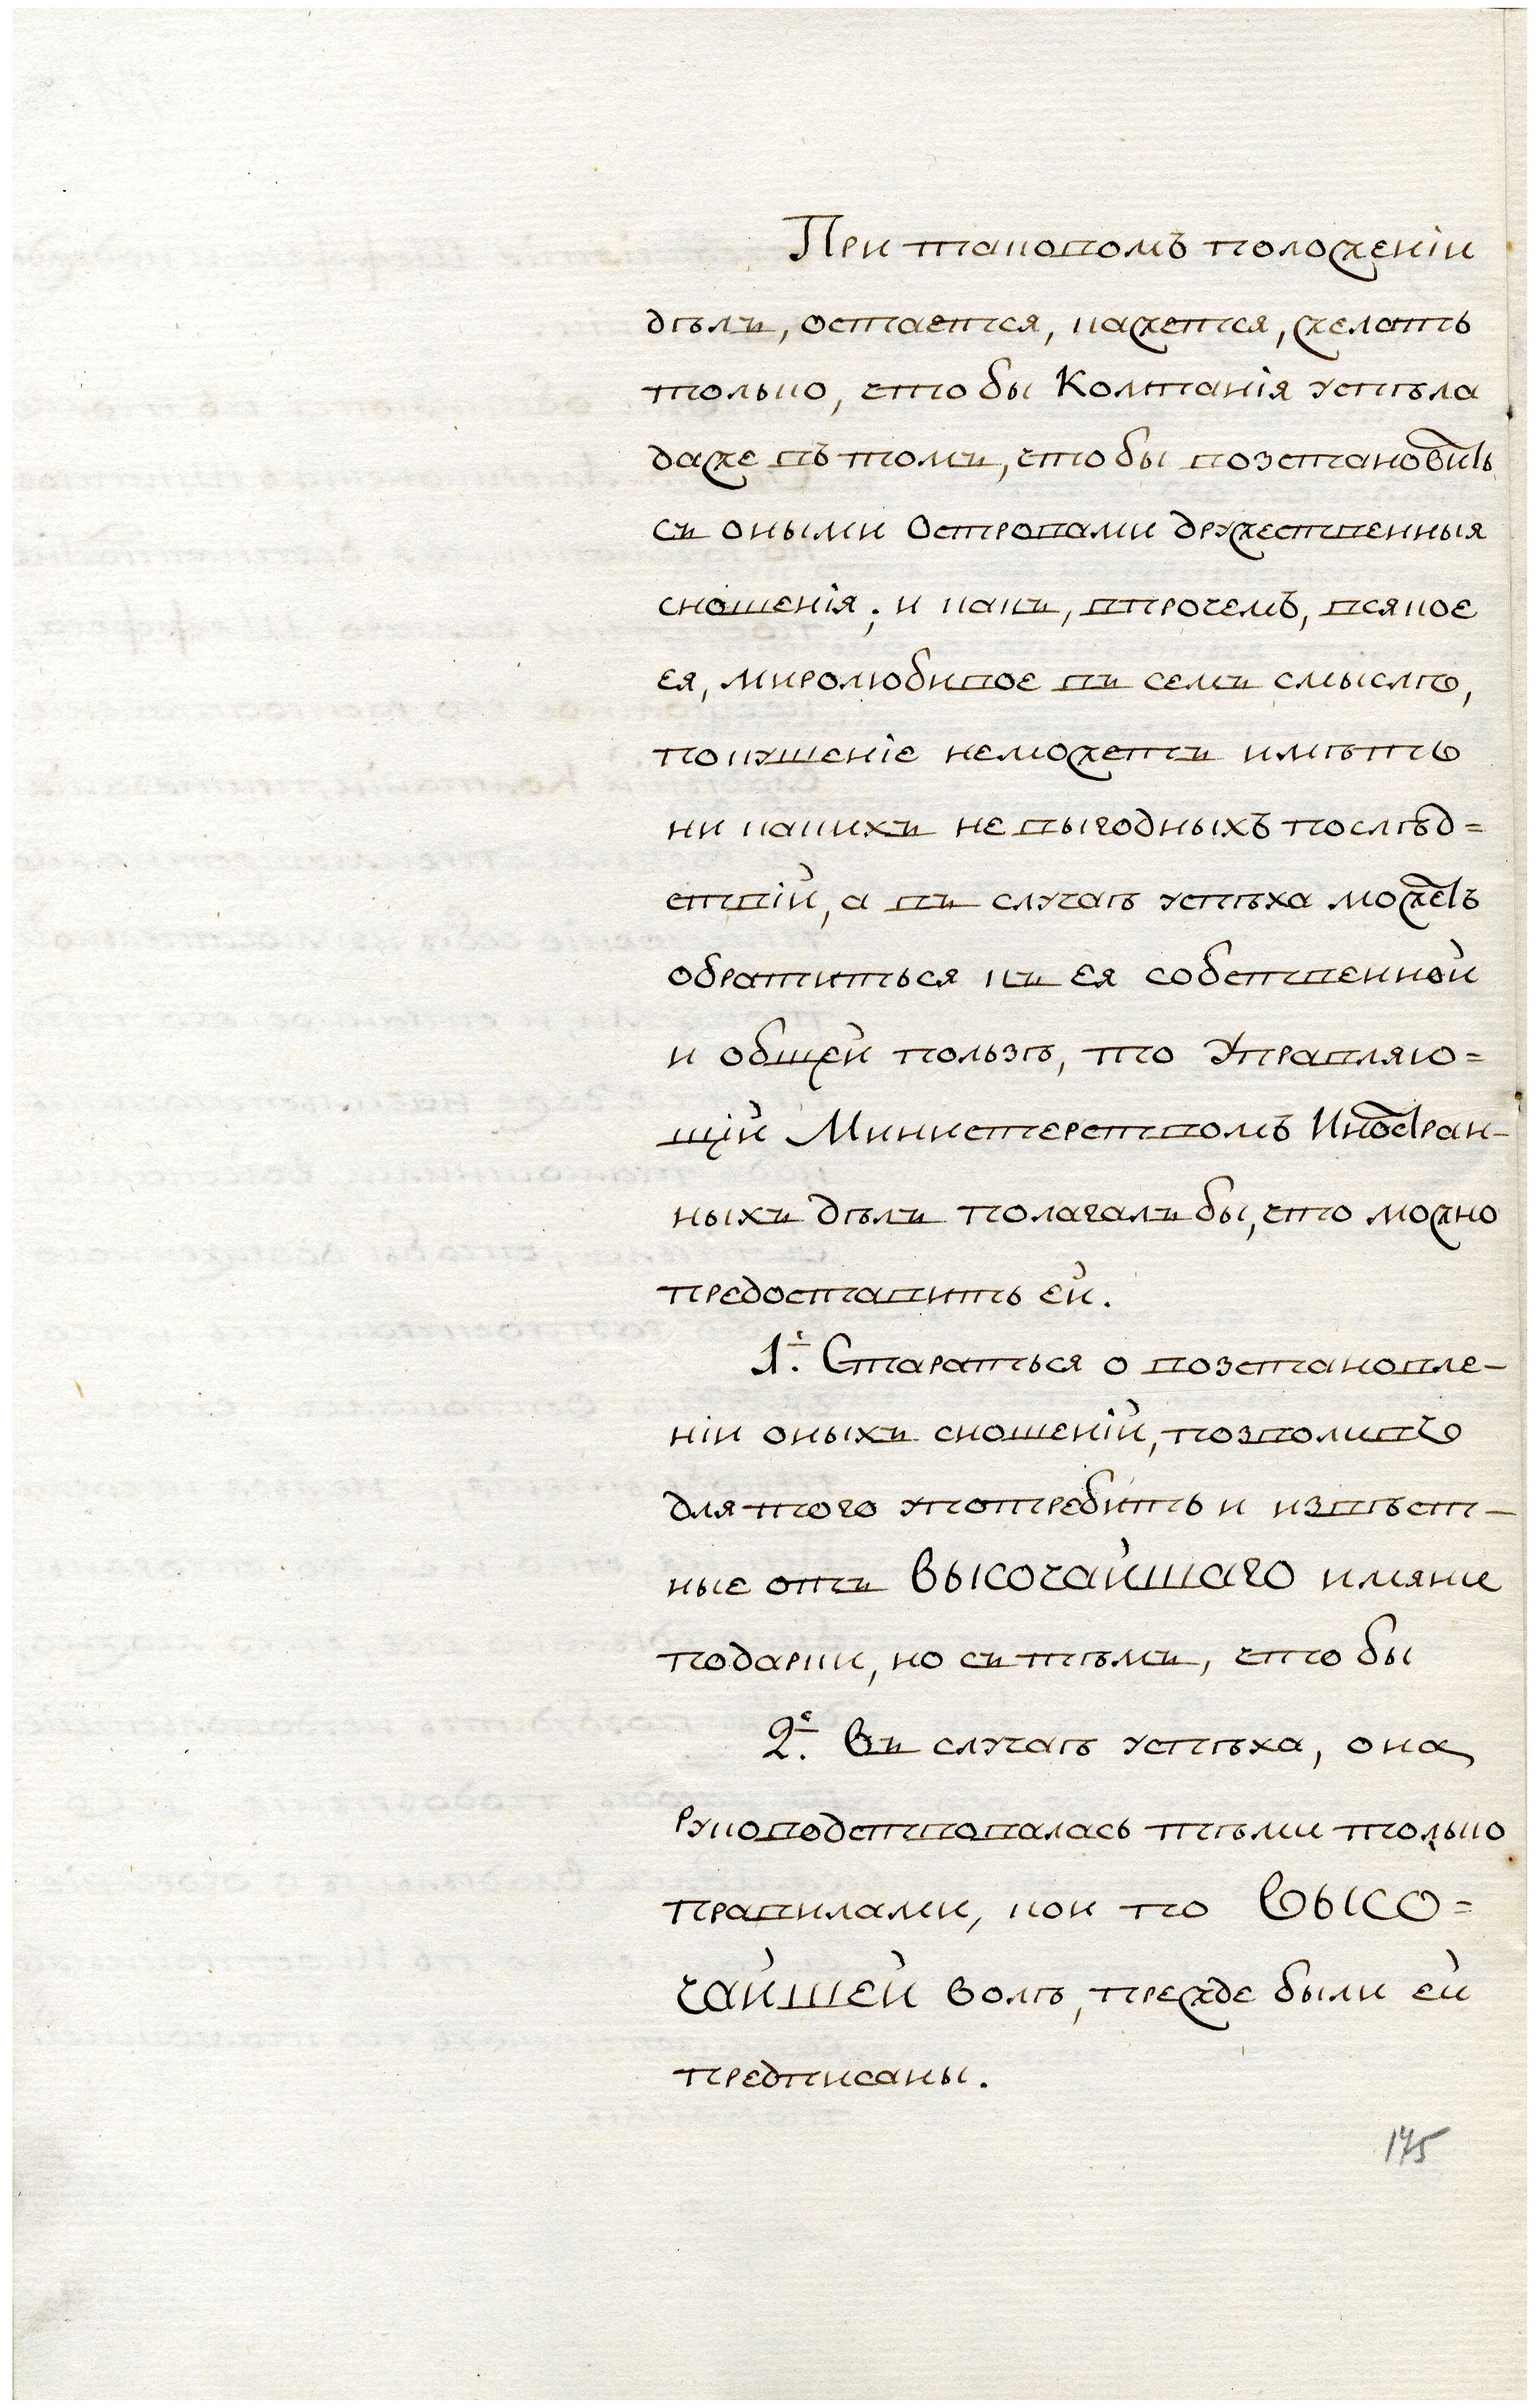 При таковомъ положеніи
дѣлъ, остается, кажется, желать
только, что бы Компанія успѣла
даже въ томъ, что бы возстановить
съ оными Островами дружественныя
сношенія; и какъ, впрочемъ, всякое
ея, миролюбивое въ семъ смыслѣ,
покушеніе неможетъ имѣть
ни какихъ не выгодныхъ послѣд=
ствій, а въ случаѣ успѣха можетъ
обратиться къ ея собственной
и общей пользѣ, то Управляю=
щій Министерствомъ Иностран-
ныхъ дѣлъ полагалъ бы, что можно
предоставить ей.
1.е Стараться о возстановле-
ніи оныхъ сношеній, позволивъ
для того употребить и извѣст-
ные отъ ВЫСОЧАЙШАГО имяни
подарки, но съ тѣмъ, что бы
2.е Въ случаѣ успѣха, она
руководствовалась тѣми только
правилами, кои по ВЫСО=
ЧАЙШЕЙ волѣ, прежде были ей
предписаны.
175